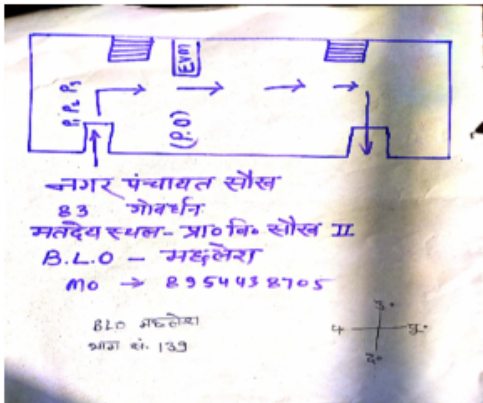 EVM
P1 P2 P3
(P.O)
नगर पंचायत सौंख
83 गोवर्धन
मतदेय स्थल - प्रा० वि० सौंख II
B.L.O - मघलेरा
MO → 8954438705
BLO मघलेरा
भाग सं. 139
उ०
4
पू०
द०